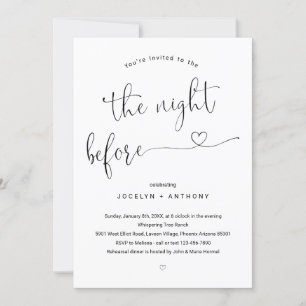 You're Invited to the
the night
before
celebrating
JOCELYN + ANTHONY
Sunday, January 8th, 20XX, at 6 o'clock in the evening
Whispering Tree Ranch
5901 West Elliot Road, Laveen Village, Phoenix Arizona 85001
RSVP to Melissa - call or text 123-456-7890
Rehearsal dinner is hosted by John & Marie Hormell